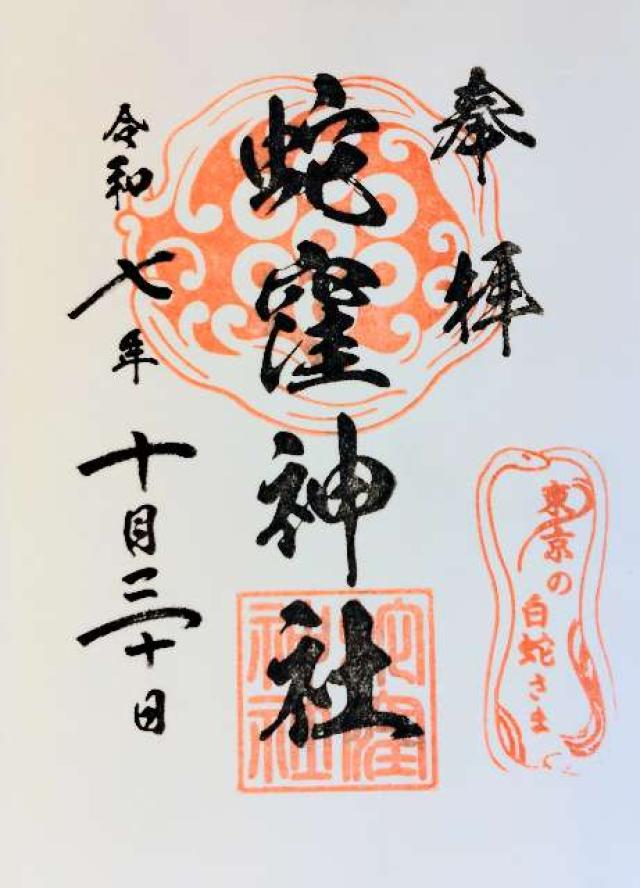 奉拝
蛇窪神社
令和七年十月三十日
東京の
白蛇さま
蛇窪
神社